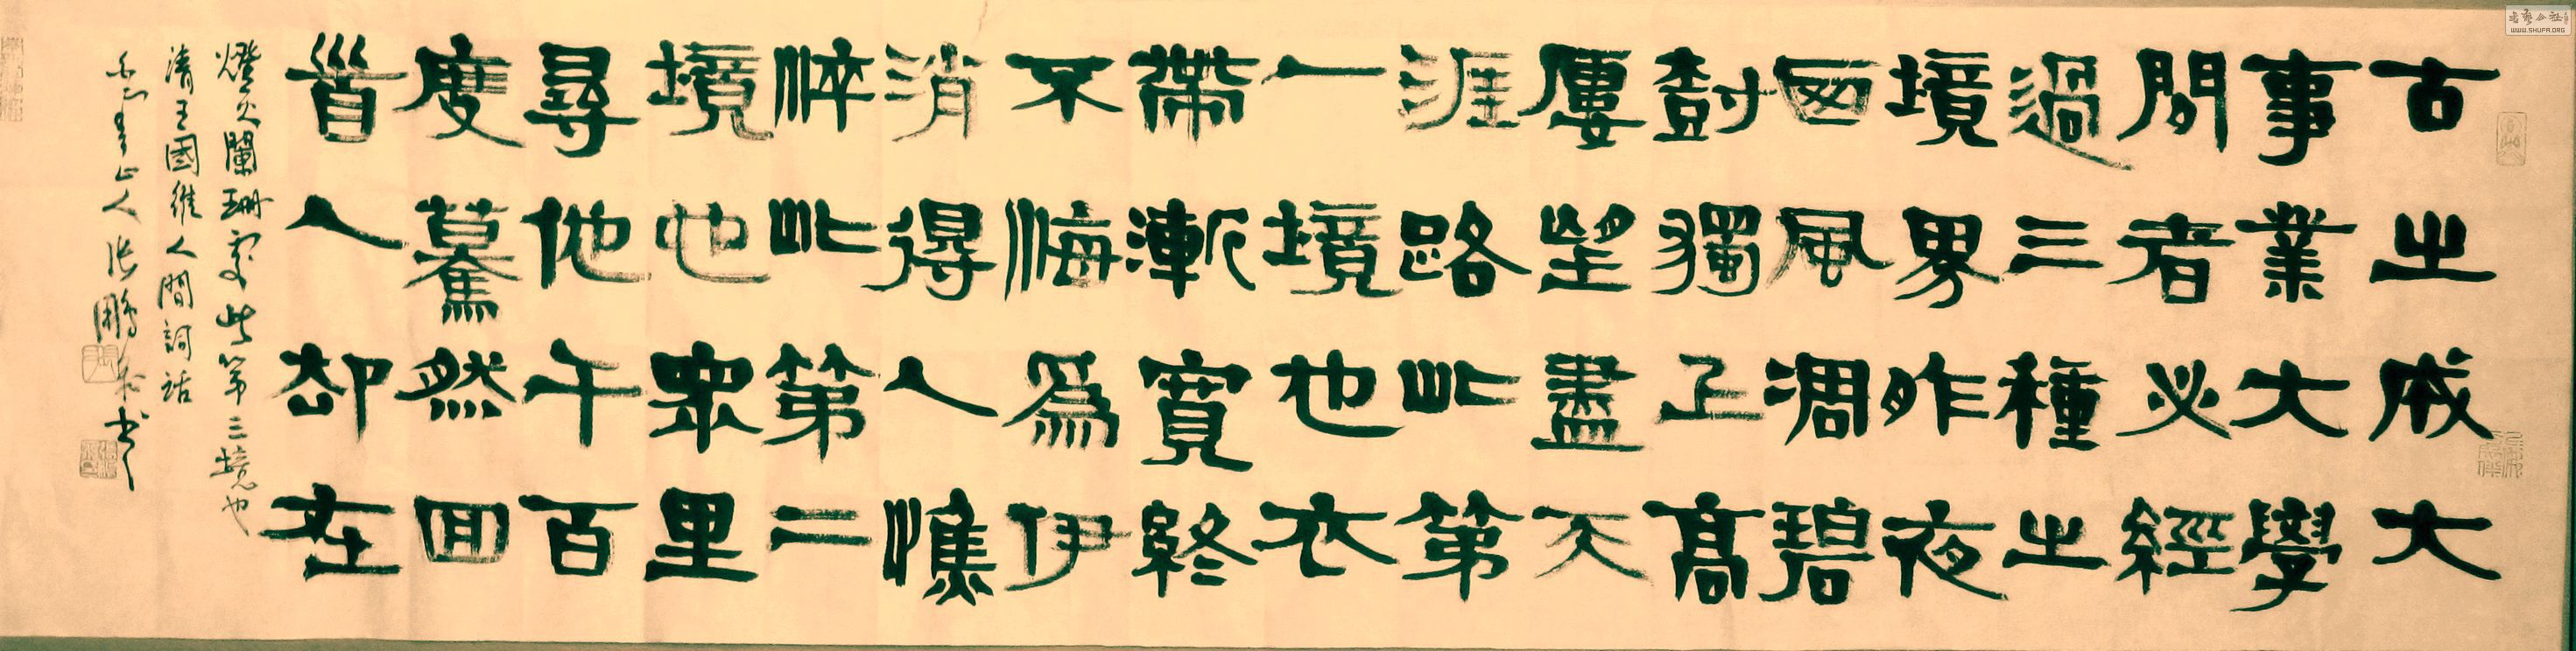 古之成大
事業大學
問者必經
過三種之
境界昨夜
西風凋碧
尌獨上高
屢望盡天
涯路此第
一境也衣
帶漸寬終
不悔爲伊
消得人憔
悴此第二
境也眾里
尋他千百
度驀然回
首人卻在
燈火闌珊處此第三境也
清王國維人間詞話
山人張鵬書
WWW.SHUFA.ORG